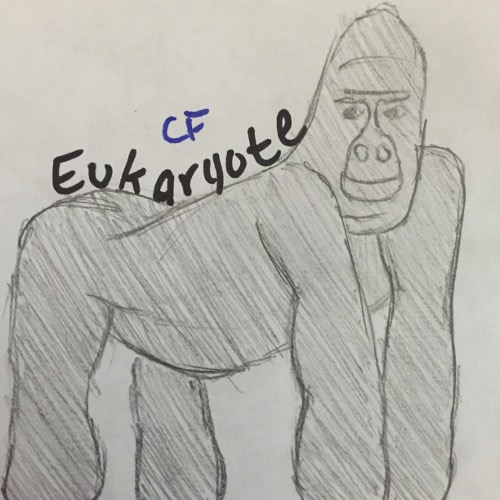 CF
Eukaryote